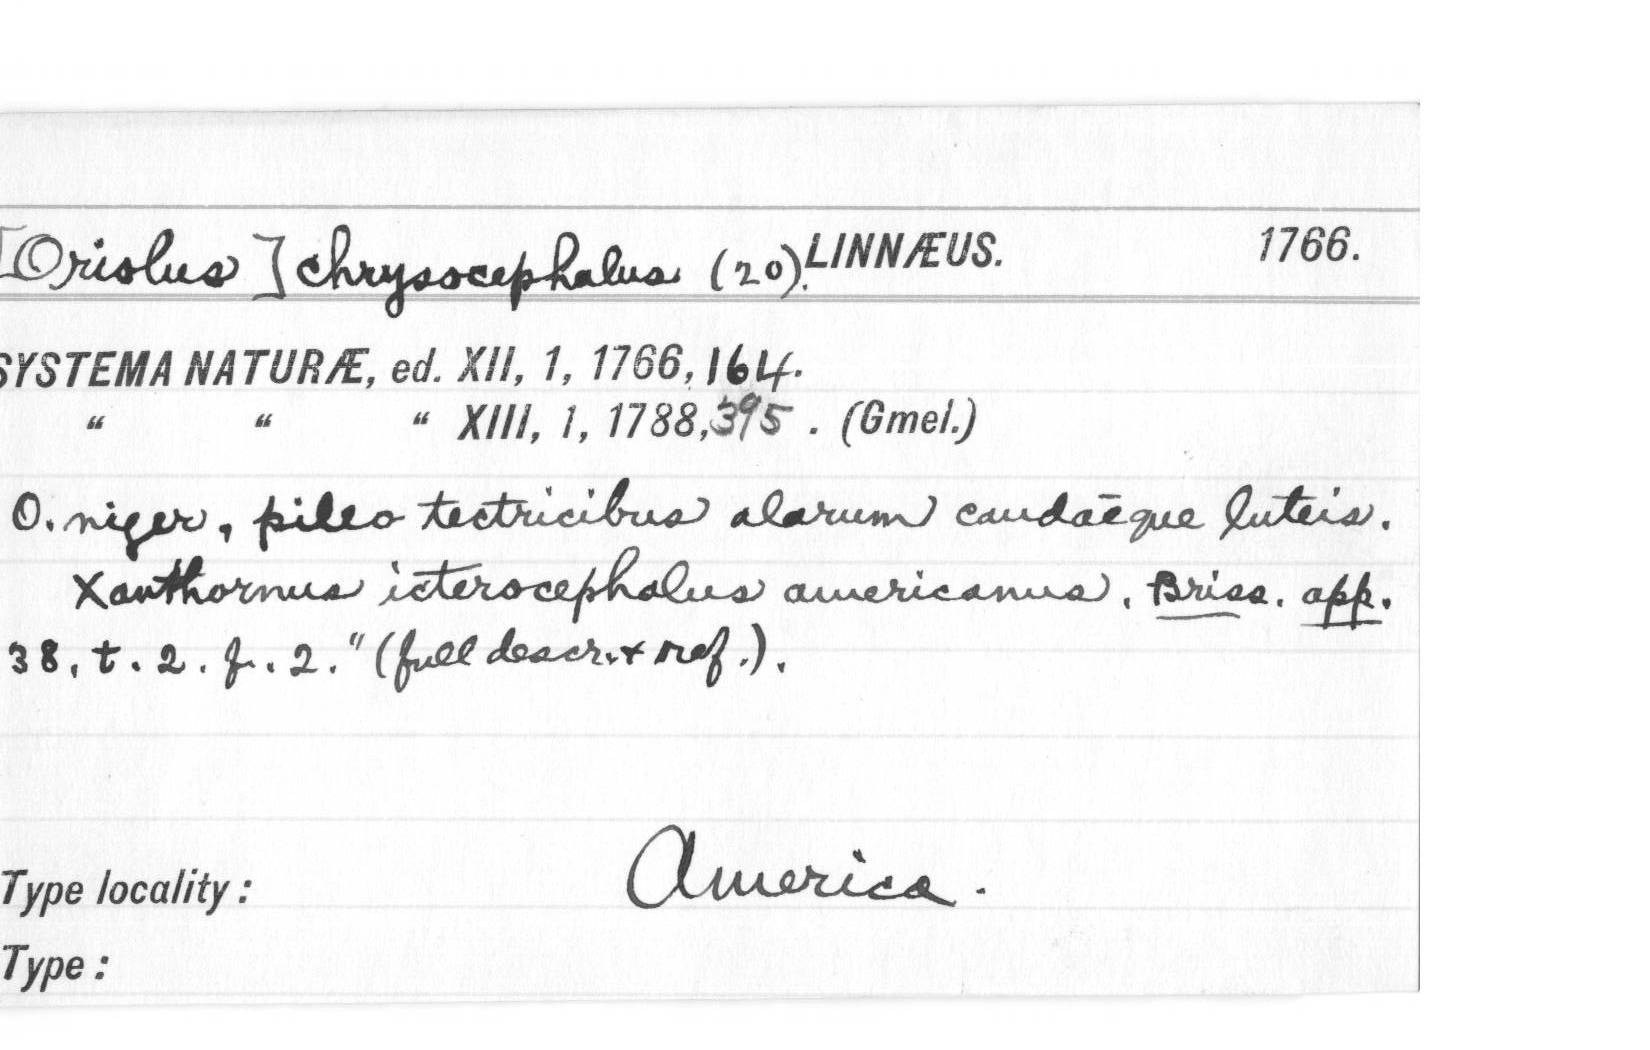 [Oriolus] chrysocephalus (20). LINNÆUS. 1766.
SYSTEMA NATURÆ, ed. XII, 1, 1766, 164.
“ “ “ XIII, 1, 1788, 395. (Gmel.)
O. niger, pileo tectricibus alarum caudaēque luteis.
Xanthornus icterocephalus americanus. Briss. app.
38. t. 2. f. 2." (full descr. + ref.).
Type locality: America.
Type: